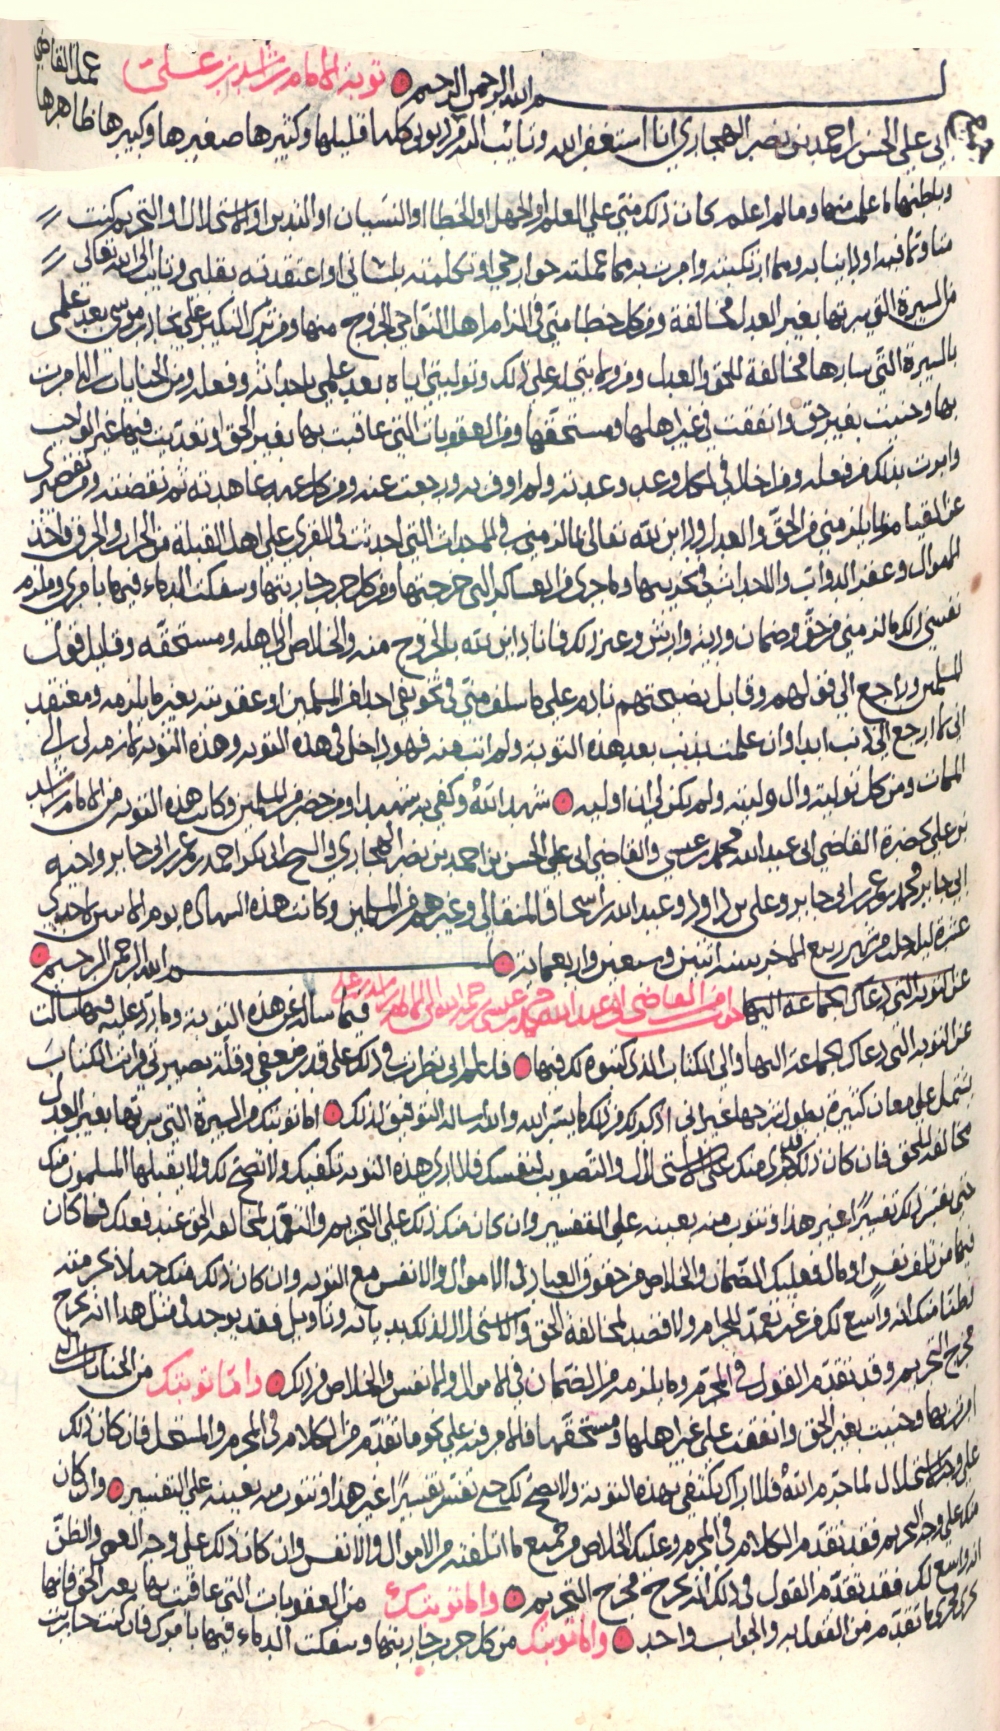 بسم الله الرحمن الرحيم توبة الامام راشد بن علي عند القاضي
ابي علي الحسن بن احمد بن نصر الهجاري انا استغفر الله وتائب اليه من ذنوبي كلها قليلها وكثيرها صغيرها وكبيرها ظاهرها
وباطنها ما علمت منها وما لم اعلم كان ذلك مني على العلم او الجهل او الخطا او النسيان او التدين او الاستحلال او التحريم كنت
متاولا فيه او دائنا به ومما ارتكبته وامرت به مما عملته جوارحي او تكلمته بلساني او اعتقدته بقلبي وتائب الى الله تعالى
من السيرة التي سرتها بغير العدل مخالفة ومن كل خطا مني في الزام اهل النواحي الخروج منها ومن ترك النكير على نجاد بن موسى بعد علمي
بالسيرة التي سارها مخالفة للحق والعدل ومن ولايتي له على ذلك وتوليتي اياه بعد علمي باحداثه وفعله ومن الجنايات التي امرت
بها وجنيت بغير حق وانفقت في غير اهلها ومستحقها ومن العقوبات التي عاقبت بها بغير الحق او تعديت فيها غير الواجب
وابرت بذلك من فعله ومن اخلالي لكل وعد وعدته ولم اوف به ورجعت عنه ومن كل عهد عاهدته ثم نقضته ومن تقصيري
عن القيام بما يلزمني من الحق والعدل ودائن لله تعالى بما لزمني في الاحداث التي احدثت في القرى على اهل القبلة من الحرق واخذ
الاموال وعقر الدواب والاحداث في تخريبها وما جرى من العساكر التي خرجتها ومن كل حرب حاربتها وسفكت الدماء فيها بامري وملزم
نفسي ذلك ما لزمني من حق وضمان ودية وارش وغير ذلك فانا دائن لله بالخروج منه والخلاص الى اهله ومستحقه وقابل قول
المسلمين وراجع الى قولهم وقابل نصيحتهم نادم على ما سلف مني في تخويفي احد من المسلمين او عقوبته بغير ما يلزمه ومعتقد
اني لا ارجع الى ذنب ابدا وان علمت بذنب بعد هذه التوبة ولم اتب منه فهو داخل في هذه التوبة وهذه التوبة لازمة لي الى
الممات ومن كل تولية وال وليته ولم يكن لي ان اوليه شهد الله وكفى به شهيدا ومن حضر من المسلمين وكانت هذه التوبة من الامام راشد
بن علي بحضرة القاضي ابي عبد الله محمد بن عيسى والقاضي ابي علي الحسن بن احمد بن نصر الهجاري والشيخ ابي بكر احمد بن عمر بن ابي جابر واخيه
ابي جابر محمد بن عمر بن ابي جابر وعلي بن داود وعبد الله بن اسحاق المنقالي وغيرهم من المسلمين وكانت هذه الشهادة يوم الاثنين لاحدى
عشرة ليلة خلت من شهر ربيع الاخر سنة اثنتين وسبعين واربعمائة بسم الله الرحمن الرحيم
عن التوبة التي دعاك الجماعة اليها جواب القاضي ابو عبد الله محمد بن عيسى رحمه الله الى الامام راشد بن علي فيما ساله عن هذه التوبة وما رد عليه فيها سالت
عن التوبة التي دعاك الجماعة اليها والى الكتاب الذي كتبوه لك فيها فاعلم اني نظرت في ذلك على قدر ضعفي وقلة بصيرتي فرايت الكتاب
يشتمل على معان كثيرة يطول شرحها غير اني اذكر لك من ذلك ما يسر الله والله اساله التوفيق لذلك اما توبتك من السيرة التي سرتها بغير العدل
مخالفة للحق فان كان ذلك جرى منك على الاستحلال والتصويب لنفسك فلا ارى هذه التوبة تكفيك ولا تصح لك ولا يقبلها المسلمون منك
حتى تفسر ذلك تفسيرا غير هذا وتتوب منه بعينه على التفسير وان كان منك ذلك على التحريم والتعمد لمخالفة الحق عند فعلك فما كان
فيها من تلف نفس او مال فعليك الضمان والخلاص من حقوق العباد في الاموال والانفس مع التوبة وان كان ذلك منك جهلا لا بحرمته
لظنا منك انه واسع لك من غير تعمد للحرام ولا قصد لمخالفة الحق والاستحلال لذلك بديانة وتاويل فقد يوجد في مثل هذا انه يخرج
مخرج التحريم وقد تقدم القول في المحرم وما يلزمه من الضمان في الاموال والانفس والخلاص من ذلك واما توبتك من الجنايات التي
امرت بها وجنيت بغير الحق وانفقت على غير اهلها ومستحقها فالامر فيه على نحو ما تقدم من الكلام في المحرم والمستحل فان كان ذلك
على وجه الاستحلال لما حرم الله فلا اراك تكتفي بهذه التوبة ولا تصح لك حتى تفسر تفسيرا غير هذا وتتوب من بعينه على التفسير وان كان
منك على وجه التحريم فقد تقدم الكلام في المحرم وعليك الخلاص من جميع ما اتلفته من الاموال والانفس وان كان ذلك على وجه العمى والظن
انه واسع لك فقد تقدم القول في ذلك انه يخرج مخرج التحريم واما توبتك من العقوبات التي عاقبت بها بغير الحق فانها
تجرى مجرى ما تقدم من القول به والجواب واحد واما توبتك من كل حرب حاربتها وسفكت الدماء فيها بامرك فان كنت حاربت